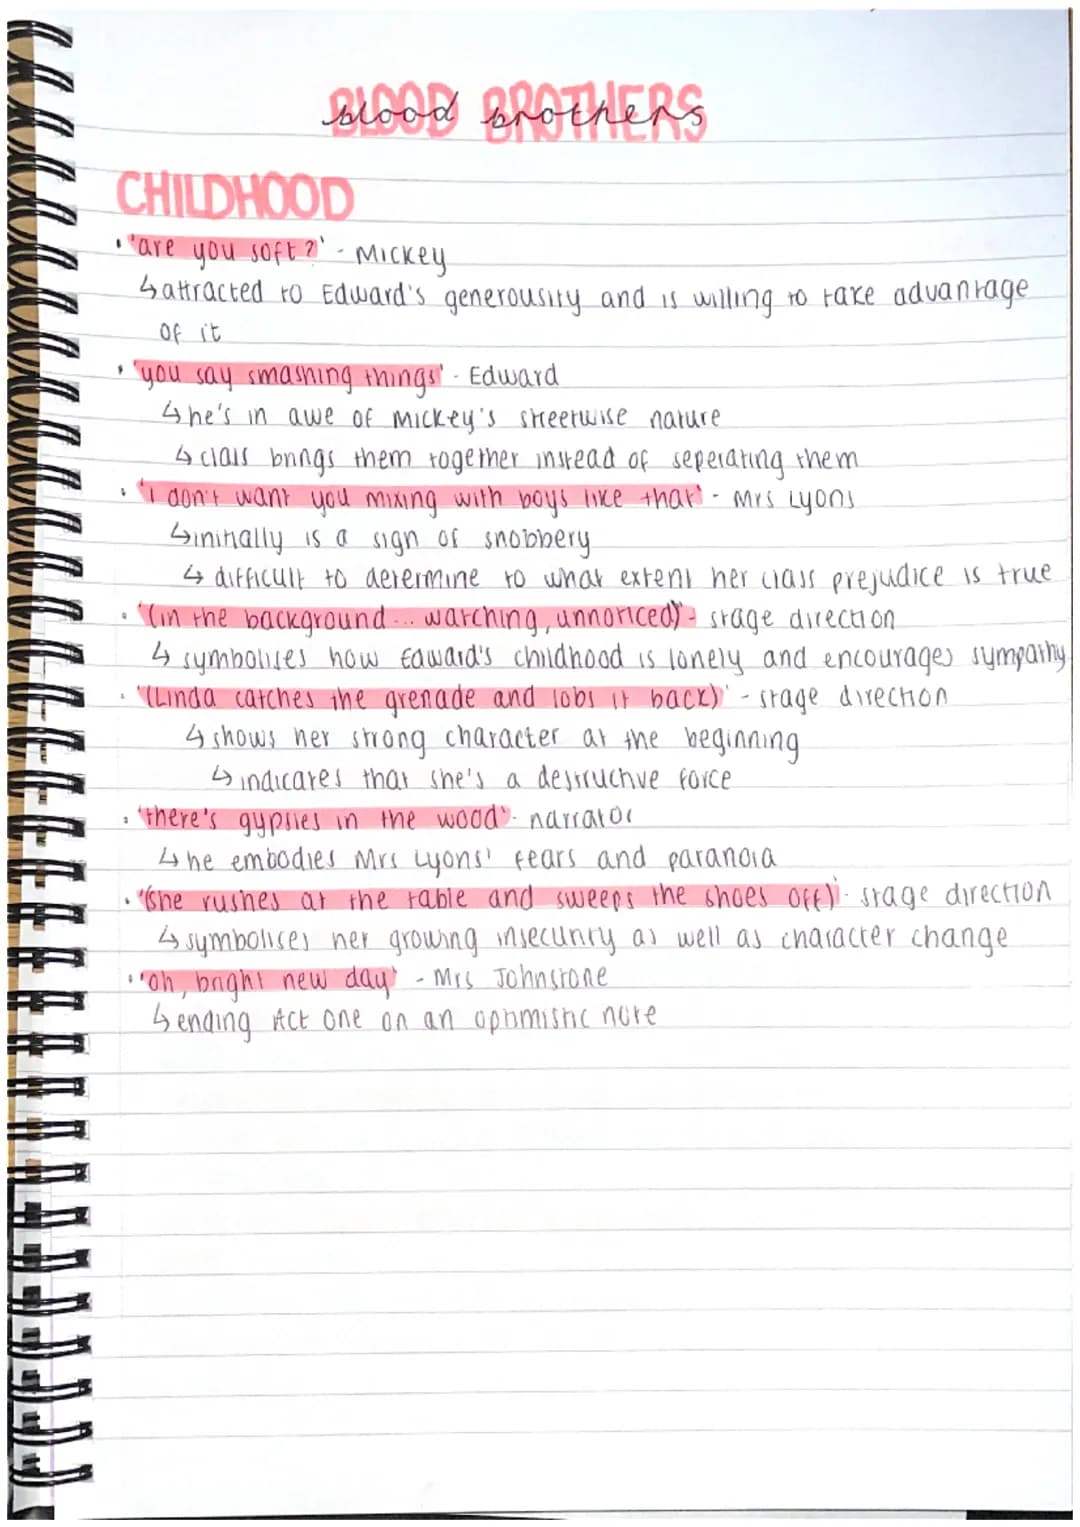 BLOOD BROTHERS
blood brothers
CHILDHOOD
• 'are you soft?' - Mickey
↳ attracted to Edward's generousity and is willing to take advantage
of it
• 'you say smashing things' - Edward
↳ he's in awe of Mickey's streetwise nature
↳ class brings them together instead of seperating them
• 'I don't want you mixing with boys like that' - Mrs Lyons
↳ initially is a sign of snobbery
↳ difficult to determine to what extent her class prejudice is true
• '(in the background... watching, unnoticed)' - stage direction
↳ symbolises how Edward's childhood is lonely and encourages sympathy
• '(Linda catches the grenade and lobs it back)' - stage direction
↳ shows her strong character at the beginning
↳ indicates that she's a destructive force
• 'there's gypsies in the wood' - narrator
↳ he embodies Mrs Lyons' fears and paranoia
• '(she rushes at the table and sweeps the shoes off)' - stage direction
↳ symbolises her growing insecurity as well as character change
• 'oh, bright new day' - Mrs Johnstone
↳ ending Act One on an optimistic note